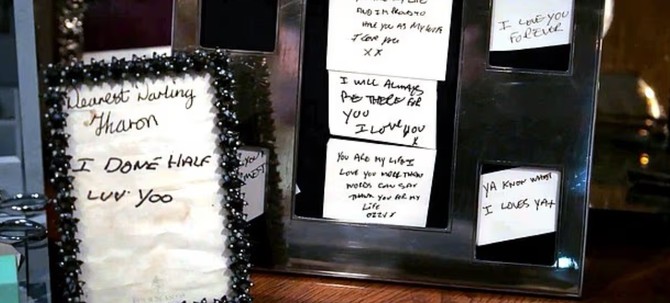 Dearest Darling
Sharon
I DONE HALF
LUV YOO
AND IM PROUD TO
HAVE YOU AS MY WIFE
I LOVE YOU
X X
I WILL ALWAYS
BE THERE FOR
YOU
I LOVE YOU
X
YOU ARE MY LIFE I
LOVE YOU MORE THAN
WORDS CAN SAY
THANK YOU FOR MY
LIFE
OZZY X
I LOVE YOU
FOREVER
YA KNOW WHAT
I LOVES YA+